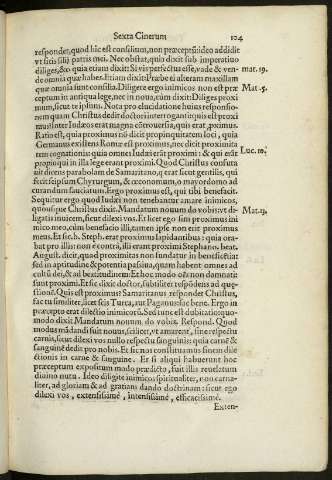 Sexta Cinerum 104
respondet, quod hic est consilium, non præceptũ: ideo addidit
vt sitis filij patris mei. Nec obstat, quia dixit sub imperatiuo
diliges, &c. quia etiam dixit: Si vis perfectus esse, vade & ven- mat. 19.
de omnia quæ habes. Etiam dixit: Præbe ei alteram maxillam
quæ omnia sunt consilia. Diligere ergo inimicos non est præ Mat. 5.
ceptum in antiqua lege, nec in noua, cũm dixit: Diliges proxi
mum, sicut te ipsum. Nota pro elucidatione huius responsio-
nem quam Christus dedit doctori interroganti: quis est proxi
mus: inter Iudæos erat magna controuersia, quis erat proximus.
Ratio est, quia proximus nõ dicit propinquitatem loci, quia
Germanus existens Romæ est proximus, nec dicit proximita
tem cognationis: quia omnes Iudæi erãt proximi: & qui erãt Luc. 10.
propinqui in illa lege erant proximi. Quod Christus confuta
uit dicens parabolam de Samaritano, q̃ erat secus gentilis, qui
fecit seipsum Chyrurgum, & œconomum, o mayordomo ad
curandum sauciatum. Ergo proximus est, qui tibi benefacit.
Sequitur ergo quod Iudæi non tenebantur amare inimicos,
quousque Christus dixit. Mandatum nouum do vobis: vt di- Mat. 13.
ligatis inuicem, sicut dilexi vos. Et licet ego sim proximus ini
mico meo, cũm benefacio illi, tamen ipse non erit proximus
meus. Et sic b. Steph. erat proximus lapidantibus: quia ora-
bat pro illis: non è contrà, illi erant proximi Stephano. beat.
August. dicit, quod proximitas non fundatur in benefic
sed in aptitudine & potentia passiua, quam habent omnes ad
cultũ dei, & ad beatitudinem: Et hoc modo oẽs non domnati:
sunt proximi. Et sic dixit doctor, subtiliter respõdens ad quę-
stionẽ. Quis est proximus? Samaritanus respondet Christus,
fac tu similiter, licet sis Turca, aut Paganus: fac bene. Ergo in
præcepto erat dilectio inimicorũ. Sed tunc est dubitatio: quo-
modo dixit Mandatum nouum do vobis. Respond. Quod
modus mãdandi fuit nouus, scilicet, vt amarent, sine respectu
carnis, sicut dilexi vos nullo respectu sanguinis: quia carnẽ &
sanguinẽ dedit pro nobis. Et sic non constituamus finem dile
ctionis in carne & sanguine. Et si aliqui habuerunt hoc
præceptum expositum modo prædicto, fuit illis reuelatum
diuino nutu. Ideo diligite inimicos spiritualiter, non carna-
liter, ad gloriam & ad gratiam dando doctrinam: sicut ego
dilexi vos, extensissimè, intensissimè, efficacissimè.
Exten-